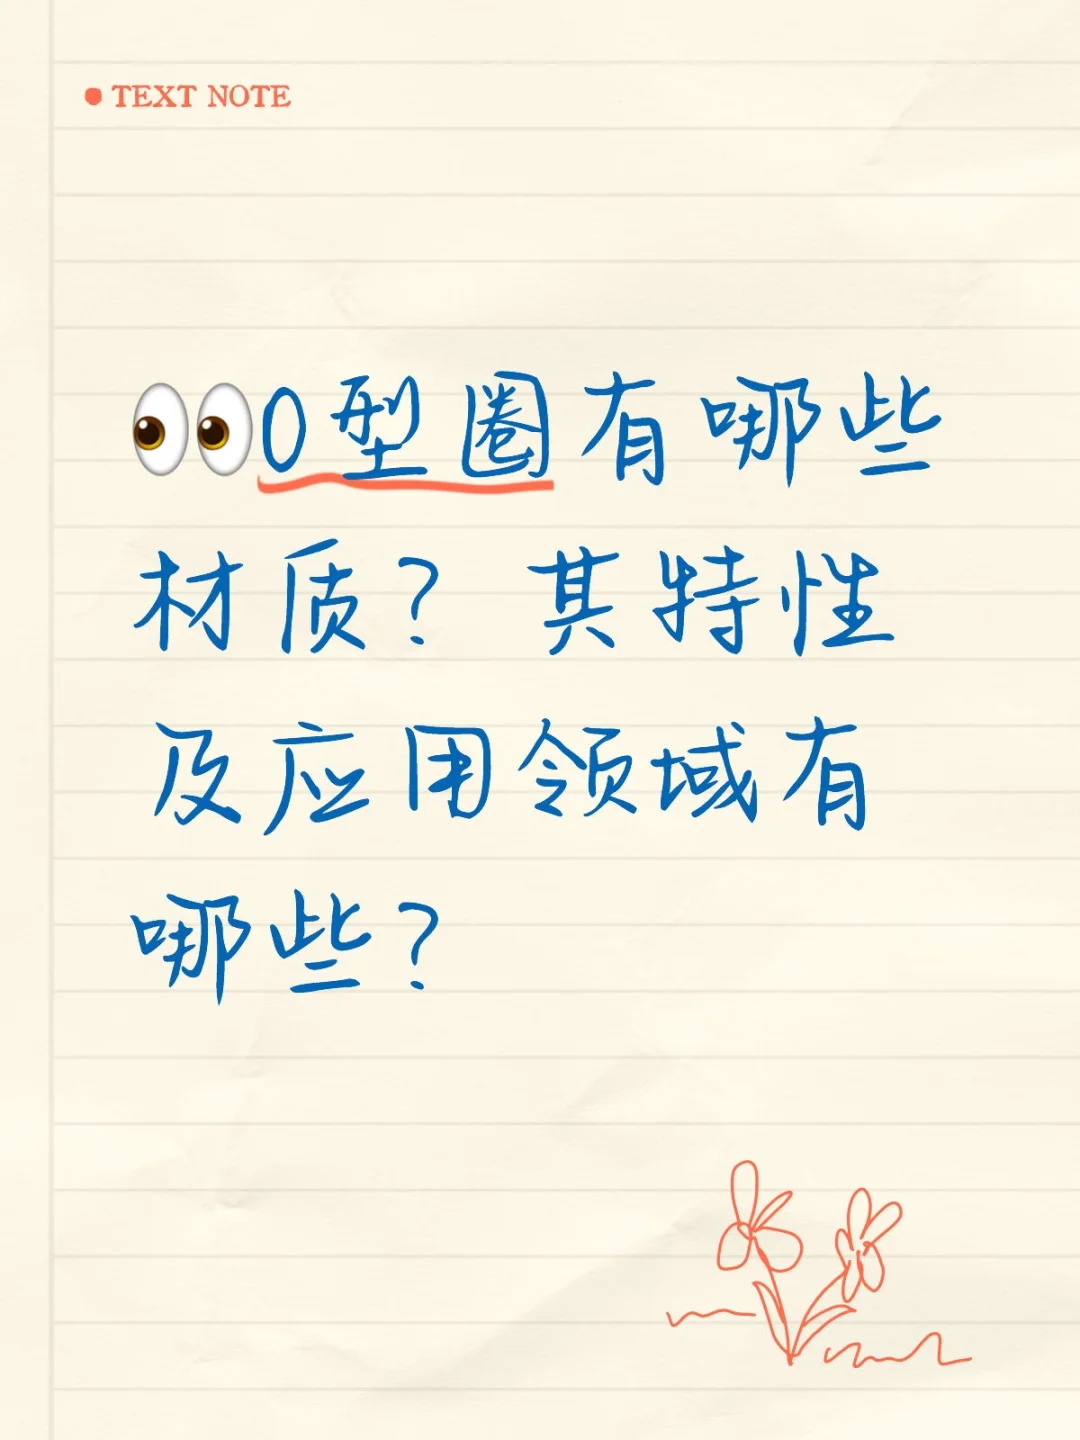 TEXT NOTE
👀O型圈有哪些
材质？其特性
及应用领域有
哪些？